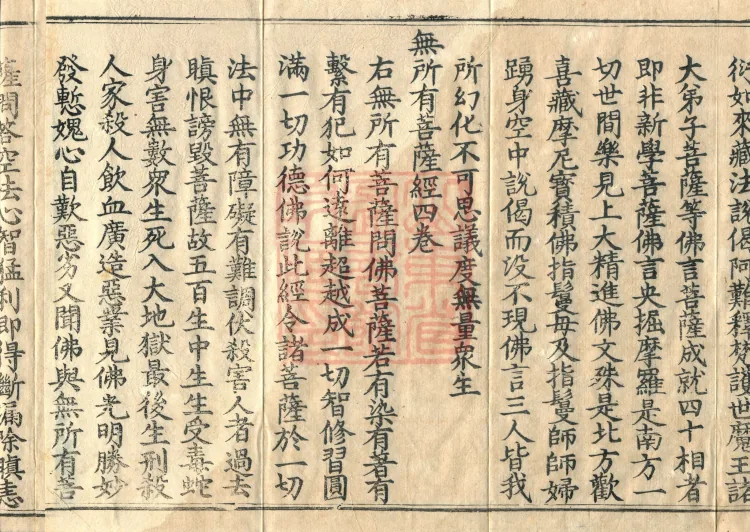 衍如來藏法說偈阿難釋梵護世魔王諸
大弟子菩薩等佛言菩薩成就四十相者
即非新學菩薩佛言央掘摩羅是南方一
切世間樂見上大精進佛文殊是北方歡
喜藏摩尼寶積佛指鬘毋及指鬘師師婦
踴身空中說偈而沒不現佛言三人皆我
所幻化不可思議度無量衆生
無所有菩薩經四卷
右無所有菩薩問佛菩薩若有染有著有
繫有犯如何遠離超越成一切智修習圓
滿一切功德佛說此經令諸菩薩於一切
法中無有障礙有難調伏殺害人者過去
瞋恨謗毀菩薩故五百生中生生受毒蛇
身害無數衆生死入大地獄最後生刑殺
人家殺人飲血廣造惡業見佛光明勝妙
發慙媿心自歎惡劣又聞佛與無所有菩
薩問答空法心智猛利即得斷漏除瞋恚